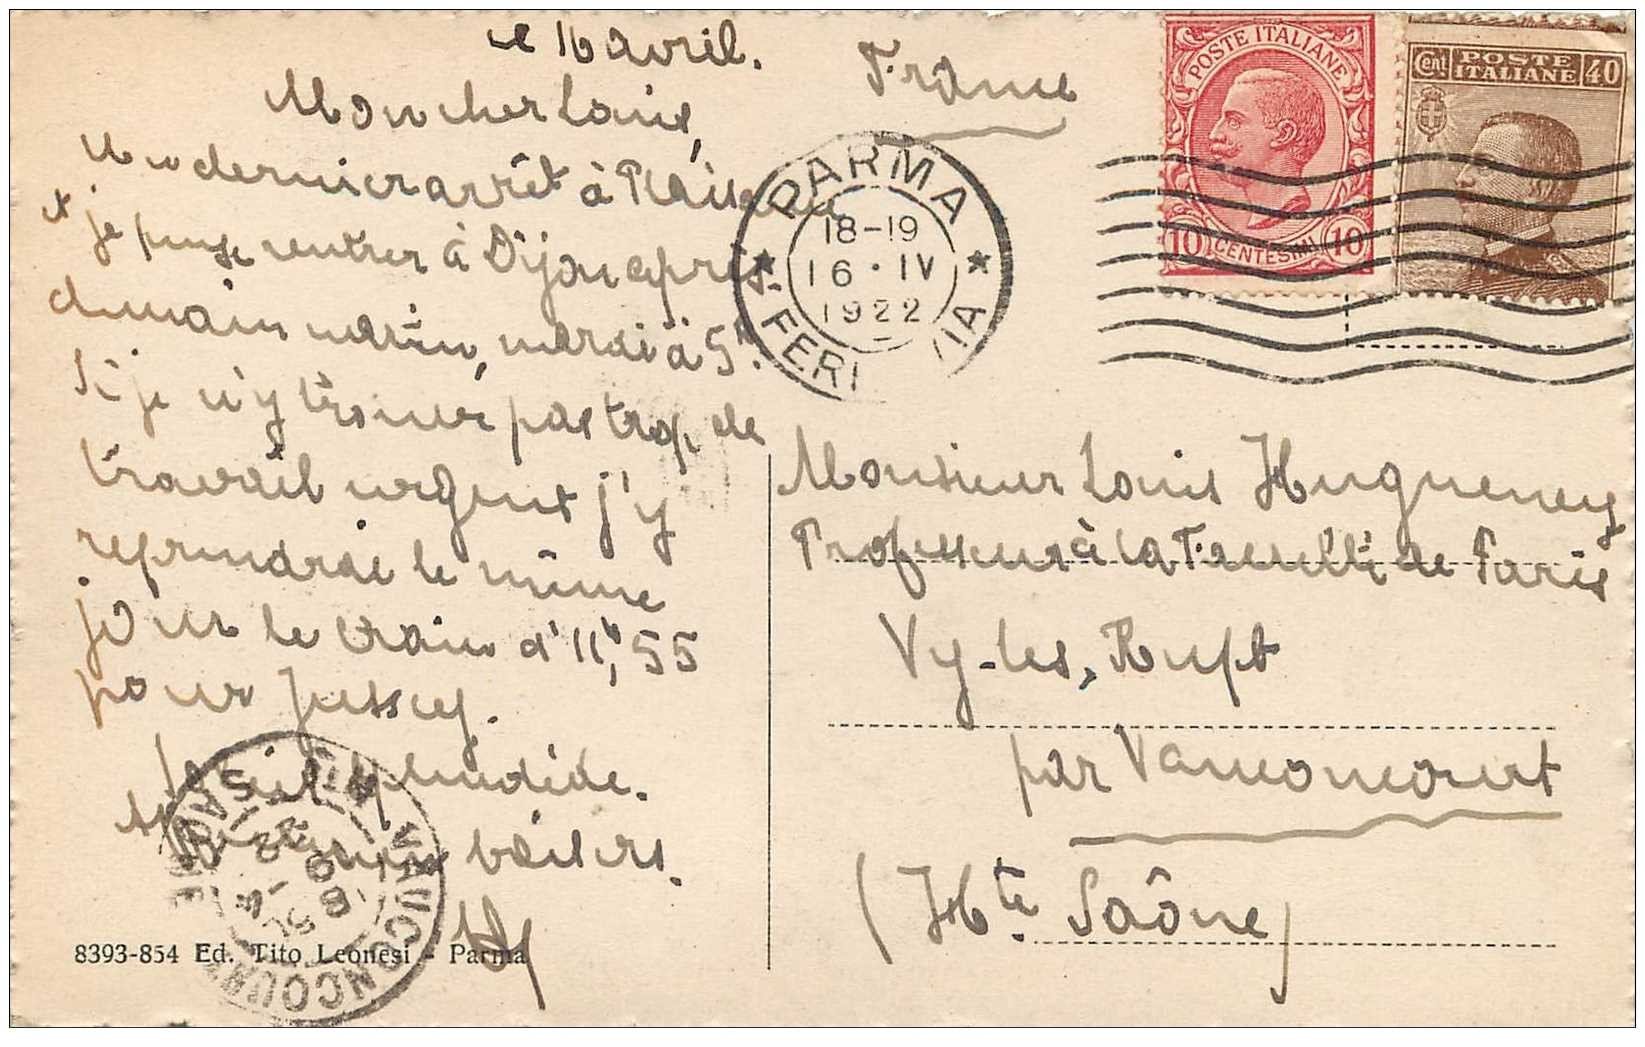 le 16 avril.
Mon cher Louis,
Un dernier arrêt à Plaisance
et je puis rentrer à Dijon après-
demain matin, mardi à 5h.
Si je n'y trouve pas trop de
travail urgent j'y
reprendrai le même
jour le train d'11h,55
pour Jussey.
Soleil splendide.
baisers.
8393-854 Ed. Tito Leonesi - Parma
France
PARMA
18-19
16·IV
1922
FERROVIA
POSTE ITALIANE
10 CENTESIMI 10
Cent POSTE ITALIANE 40
Monsieur Louis Hugueney
Professeur à la Faculté de Paris
Vy-les-Rupt
par Vauconcourt
(Hte Saône)
VAUCONCOURT